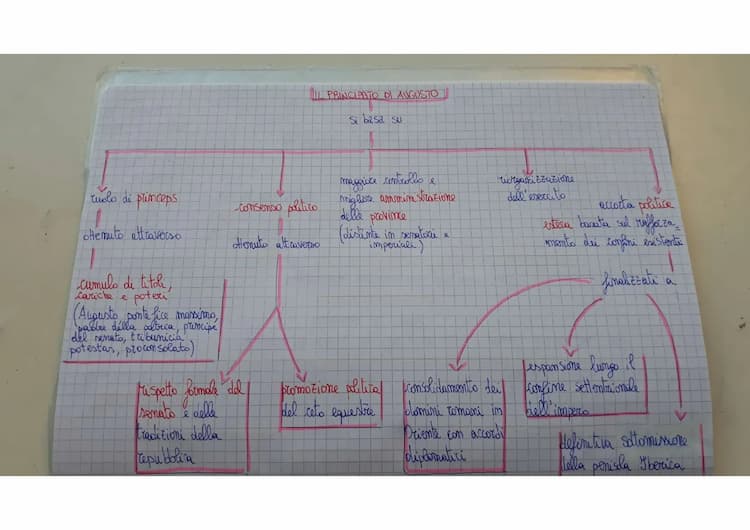 IL PRINCIPATO DI AUGUSTO
si basa su
ruolo di princeps
ottenuto attraverso
cumulo di titoli,
cariche e poteri
(Augusto pontefice massimo,
padre della patria, principe
del senato, tribunicia
potestas, proconsolato)
consenso politico
ottenuto attraverso
rispetto formale del
senato e delle
tradizioni della
repubblica
promozione politica
del ceto equestre
maggiore controllo e
migliore amministrazione
delle province
(distinte in senatorie e
imperiali)
riorganizzazione
dell'esercito
accorta politica
estera basata sul rafforza=
mento dei confini esistenti
finalizzati a
consolidamento dei
domini romani in
Oriente con accordi
diplomatici
espansione lungo il
confine settentrionale
dell'impero
definitiva sottomissione
della penisola Iberica